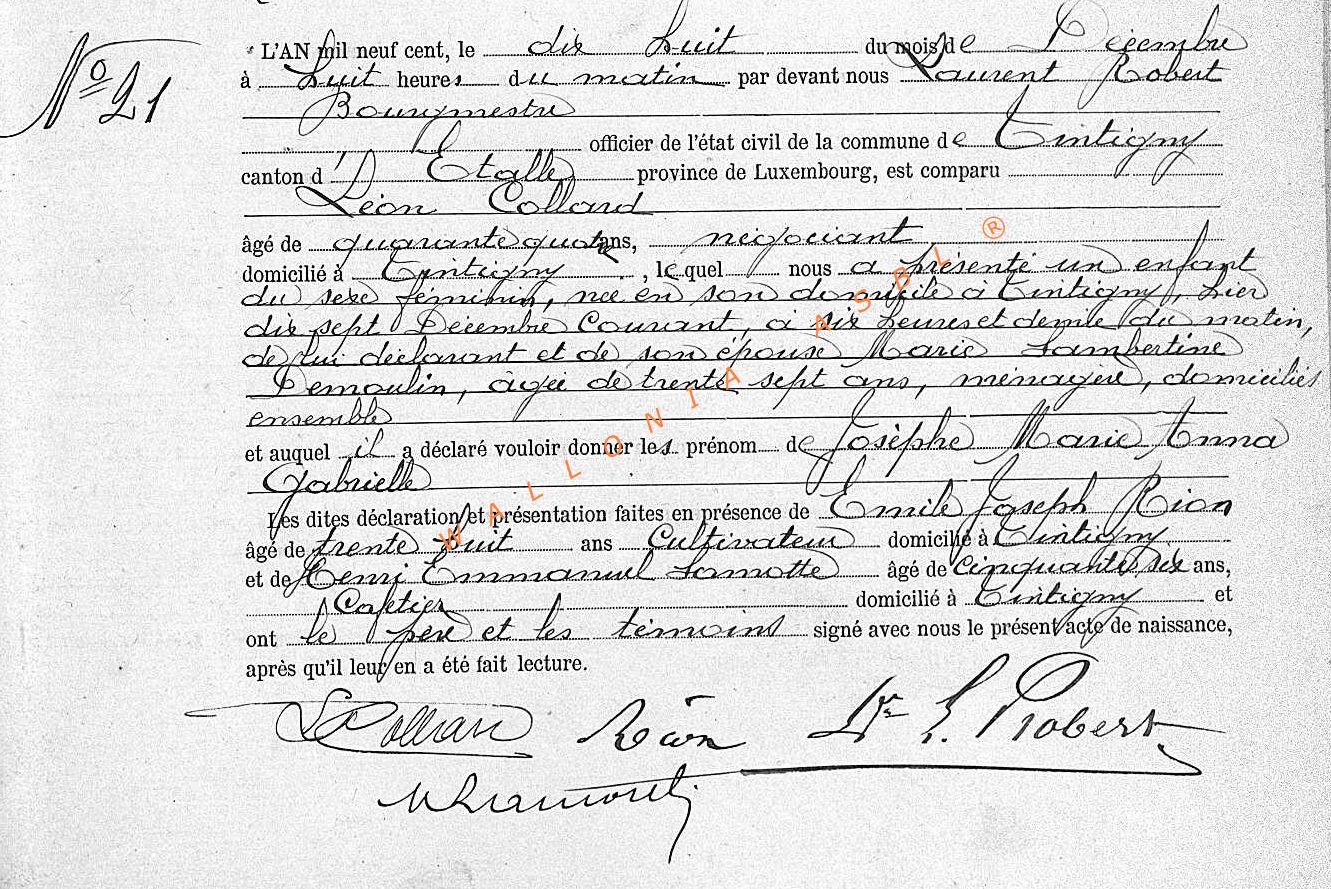 Nº 21
L'AN mil neuf cent, le dix huit du mois de Décembre
à huit heures du matin par devant nous Laurent Robert
Bourgmestre
officier de l'état civil de la commune de Tintigny
canton d'Etalle province de Luxembourg, est comparu
Léon Collard
âgé de quarante quatre ans, négociant
domicilié à Tintigny, lequel nous a présenté un enfant
du sexe féminin, née en son domicile à Tintigny, hier
dix sept Décembre courant, à six heures et demie du matin,
de lui déclarant et de son épouse Marie Lambertine
Demoulin, âgée de trente sept ans, ménagère, domiciliés
ensemble
et auquel il a déclaré vouloir donner les prénom de Josèphe Marie Anna
Gabrielle
Les dites déclaration et présentation faites en présence de Emile Joseph Rion
âgé de trente huit ans Cultivateur domicilié à Tintigny
et de Henri Emmanuel Lamotte âgé de cinquante six ans,
Cafetier domicilié à Tintigny et
ont le père et les témoins signé avec nous le présent acte de naissance,
après qu'il leur en a été fait lecture.
L Collard Rion Dr L. Robert
WALLONIA ASBL ®